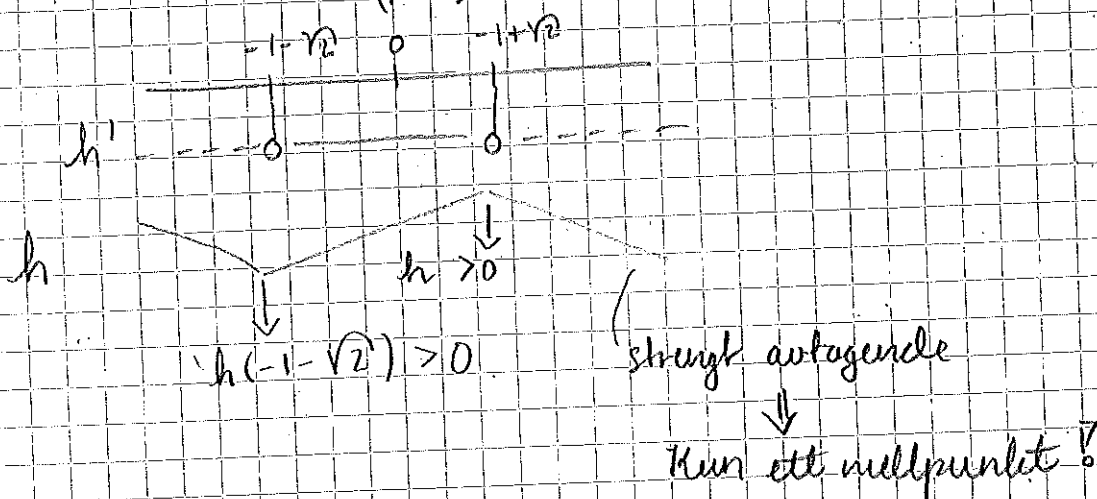 -1-√2 0 -1+√2
h'
h
h >0
h(-1-√2) >0
strengt avtagende
⇓
Kun ett nullpunkt!